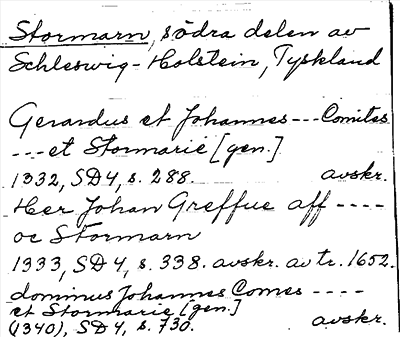 Stormarn, södra delen av
Schleswig-Holstein, Tyskland
Gerardus et Johannes --- Comites
--- et Stormarie [gen.]
1332, SD4, s. 288. avskr.
Her Johan Greffue aff ----
oc Stormarn
1333, SD4, s. 338. avskr. av tr. 1652.
dominus Johannes Comes ----
et Stormarie [gen.]
(1340), SD4, s. 730. avskr.